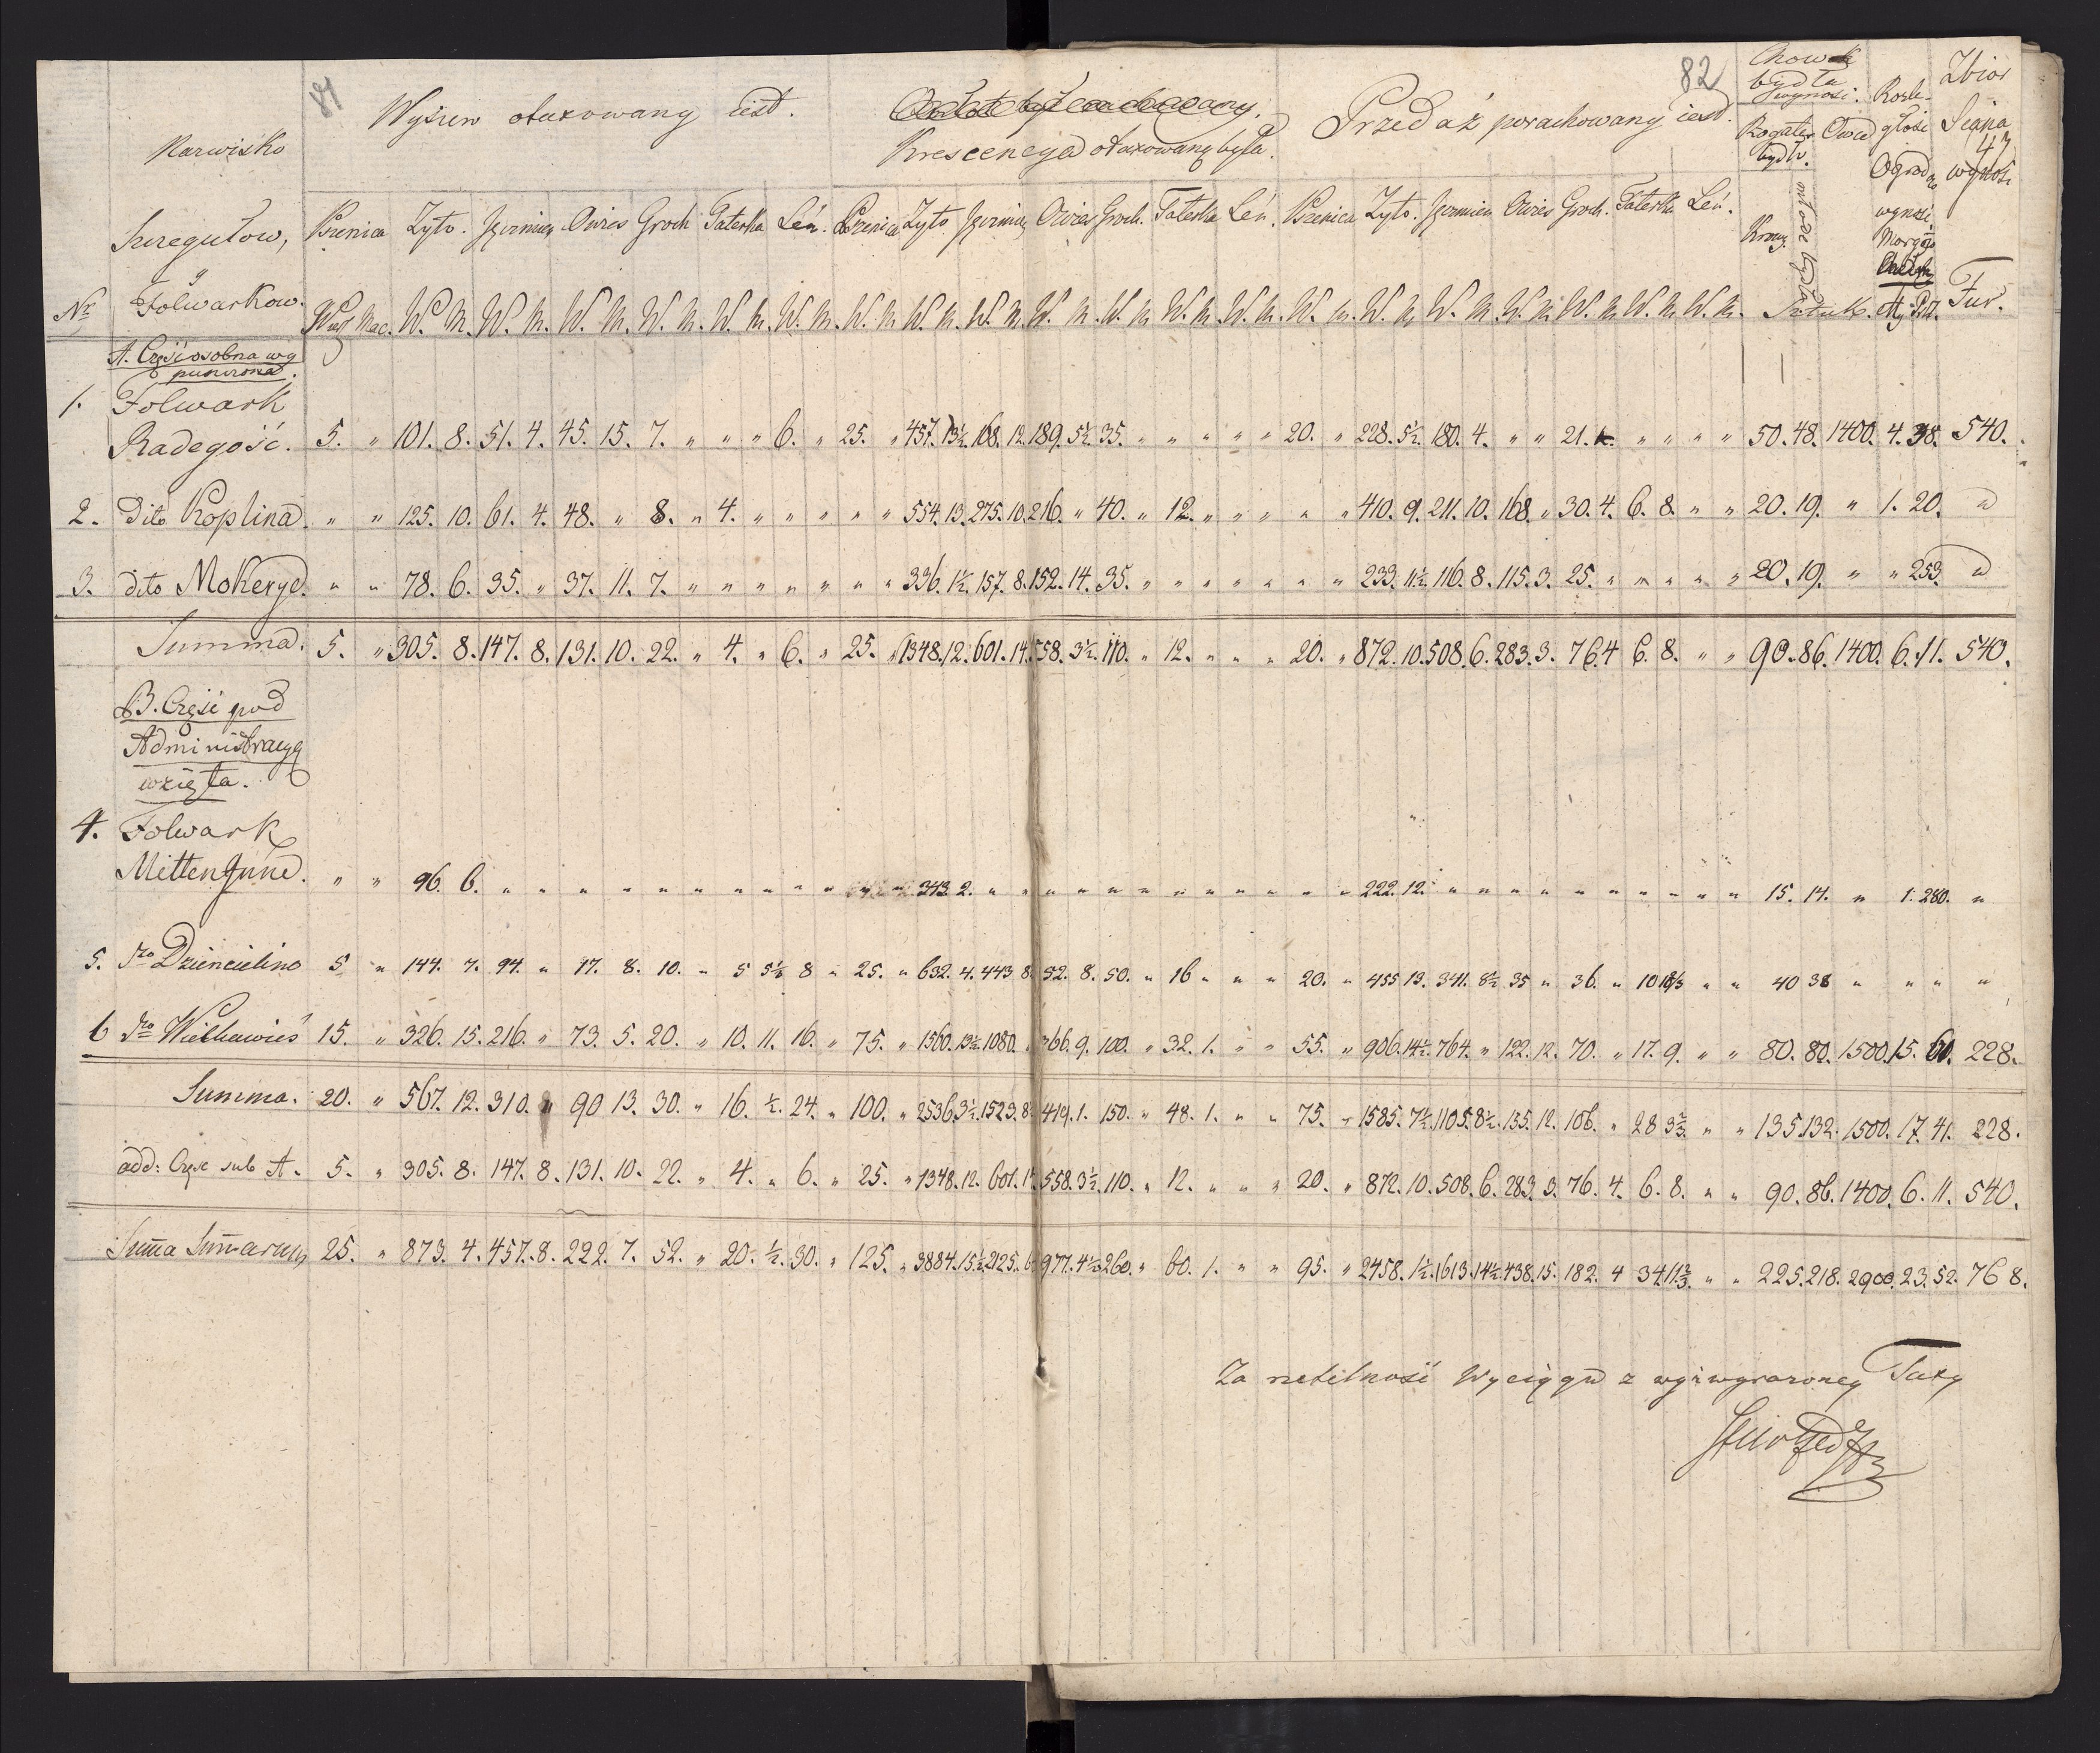 81
82
Nazwisko
Szeregułow,
y
Folwarkow.
Nr
Wysiew otaxowany iest.
Krescencya otaxowaną była.
Przedaż porachowany iest.
Chowek
bydła
wynosi.
Rogate
bydło.
Owce
Krowy
Rozle-
głość
Ogrodo
wynosi
Morgow
Zbior
Siana
wynosi
Sztuk. M. Pr. Fur.
Pszenica Zyto. Jęczmień Owies Groch Tatarka Leń. Pszenica Zyto Jęczmień Owies Groch. Tatarka Leń. Pszenica Zyto. Jęczmien Owies Groch. Tatarka Leń.
W. M. W. M. W. M. W. M. W. M. W. M. W. M. W. M. W. M. W. M. W. M. W. M. W. M. W. M. W. M. W. M. W. M. W. M. W. M. W. M.
A. Część osobna wy
puszczona.
1. Folwark
Radegość. 5. " 101. 8. 51. 4. 45. 15. 7. " " " 6. " 25. " 457. 13½. 168. 12. 189. 5½. 35. " " " " " 20. " 228. 5½. 180. 4. " " 21. " " " " 50. 48. 1400. 4. 98. 540.
2. dito Koplina. " " 125. 10. 61. 4. 48. " 8. " 4. " " " " " 554. 13. 275. 10. 216. " 40. " 12. " " " " " 410. 9. 211. 10. 168. " 30. 4. 6. 8. " " 20. 19. " 1. 20. "
3. dito Mokeryd. " " 78. 6. 35. " 37. 11. 7. " " " " " " " 336. 1½. 157. 8. 152. 14. 35. " " " " " " " 233. 11½. 116. 8. 115. 3. 25. " " " " " 20. 19. " " 253. "
Summa. 5. " 305. 8. 147. 8. 131. 10. 22. " 4. " 6. " 25. " 1348. 12. 601. 14. 558. 3½. 110. " 12. " " " 20. " 872. 10. 508. 6. 283. 3. 76. 4 6. 8. " " 90. 86. 1400. 6. 11. 540.
B. Część pod
Administracyą
wzięta.
4. Folwark
" " 96. 6. " " " " " " " " " " " " 343. 2. " " " " " " " " " " " " 222. 12. " " " " " " " " " " 15. 14. " 1. 280. "
5. dto Dziencielino 5 " 144. 7. 94. " 17. 8. 10. " 5 5½ 8 " 25. " 632. 4. 443 8. 52. 8. 50. " 16 " " " 20. " 455 13. 341. 8½ 35 " 36. " 10 10⅔ " " 40 38 " " " "
6 dto Wielkawieś 15. " 326. 15. 216. " 73. 5. 20. " 10. 11. 16. " 75. " 1560. 13½. 1080. " 366. 9. 100. " 32. 1. " " 55. " 906. 14½. 764. " 122. 12. 70. " 17. 9. " " 80. 80. 1500. 15. 60. 228.
Summa. 20. " 567. 12. 310. " 90 13. 30. " 16. ½. 24. " 100. " 2536. 3½. 1523. 8. 419. 1. 150. " 48. 1. " " 75. " 1585. 7½. 1105. 8½. 155. 12. 106. " 28 3⅔. " " 135. 132. 1500. 17. 41. 228.
add: Częś sub A. 5. " 305. 8. 147. 8. 131. 10. 22. " 4. " 6. " 25. " 1348. 12. 601. 14 558. 3½. 110. " 12. " " " 20. " 872. 10. 508. 6. 283. 3. 76. 4. 6. 8. " " 90. 86. 1400. 6. 11. 540.
Summa Summarum 25. " 873. 4. 457. 8. 222. 7. 52. " 20. ½. 30. " 125. " 3884. 15½. 2125. 6 977. 4½. 260. " 60. 1. " " 95. " 2458. 1½. 1613. 14½. 438. 15. 182. 4 34 11⅔. " " 225. 218. 2900. 23. 52. 768.
Za rzetelność Wyciągu z wyiwyrazoney Taxy